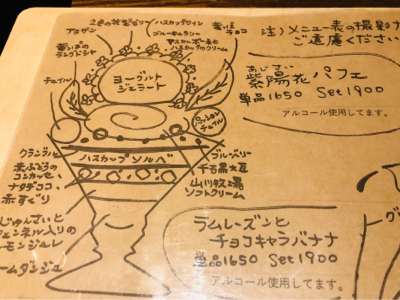 2色の花型ゼリー
ハスカップワイン
アマザン
ブルーキュラソー
黄いほ
チョコ
マスカルポーネと
ハスカップのクリーム
ラングドシャ
チュイル
ヨーグルト
ジェラート
パッション
チュイル
クランブル
赤ぶどうの
コンカッセ、
ナタデココ
赤すぐり
じゅんさいと
フェンネル入りの
モンジュレ
ームダンジュ
ハスカップソルベ
ブルーベリー
千石黒大豆
山川牧場
ソフトクリーム
注)メニュー表の撮影
ご遠慮ください
あじさい
紫陽花パフェ
単品1650 Set1900
アルコール使用してます。
ラムレーズンと
チョコキャラバナナ
単品1650 Set1900
アルコール使用してます。